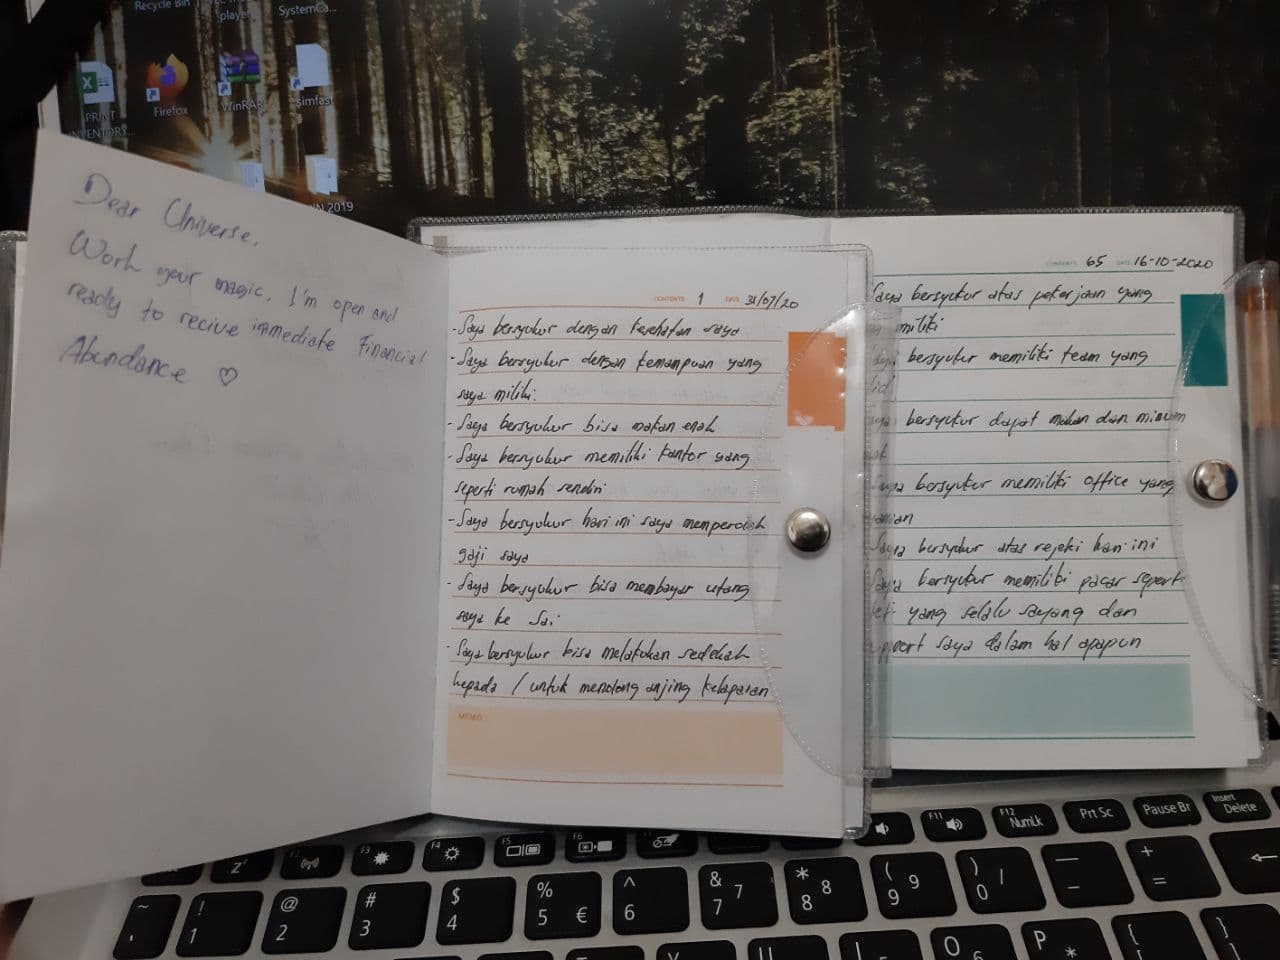 Recycle Bin
player
SystemCa...
PRINT
INVENTORY...
Firefox
WinRAR
simfast
2019
Dear Universe,
Work your magic, I'm open and
ready to recive immediate Financial
Abundance ♡
CONTENTS 1 DATE 31/07/20
- Saya bersyukur dengan kesehatan saya
- Saya bersyukur dengan kemampuan yang
saya miliki.
- Saya bersyukur bisa makan enak
- Saya bersyukur memiliki kantor yang
seperti rumah sendiri
- Saya bersyukur hari ini saya memperoleh
gaji saya
- Saya bersyukur bisa membayar utang
saya ke Sai
- Saya bersyukur bisa melakukan sedekah
kepada / untuk menolong anjing kelaparan
MEMO
CONTENTS 65 DATE 16-10-2020
Saya bersyukur atas pekerjaan yang
miliki
bersyukur memiliki team yang
bersyukur dapat makan dan minum
bersyukur memiliki office yang
Saya bersyukur atas rejeki hari ini
Saya bersyukur memiliki pacar seperti
yang selalu sayang dan
support saya dalam hal apapun
F3
F4
F5
F6
F11
F12
NumLk
Prt Sc
Pause Br
Insert
Delete
~
! 1
@ 2
# 3
$ 4
% 5 €
^ 6
& 7 7
* 8 8
( 9 9
) 0 /
— -
+ =
O 6
P *
{ [
} ]